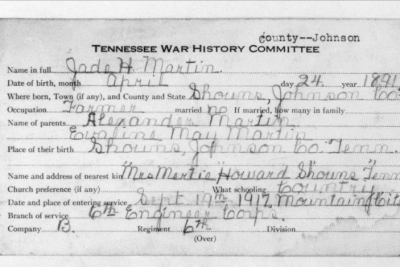 county--Johnson
TENNESSEE WAR HISTORY COMMITTEE
Name in full Jade H. Martin.
Date of birth, month April day 24 year 1891
Where born, Town (if any), and County and State Shouns, Johnson Co.
Occupation Farmer married no If married, how many in family
Name of parents Alexander Martin
Evaline May Martin
Place of their birth Shouns, Johnson Co. Tenn.
Name and address of nearest kin "Mrs Mertie" Howard Shouns Tenn
Church preference (if any) What schooling Country
Date and place of entering service Sept. 19th 1917, Mountain City
Branch of service 6th Engineer Corps.
Company B. Regiment 6th Division
(Over)